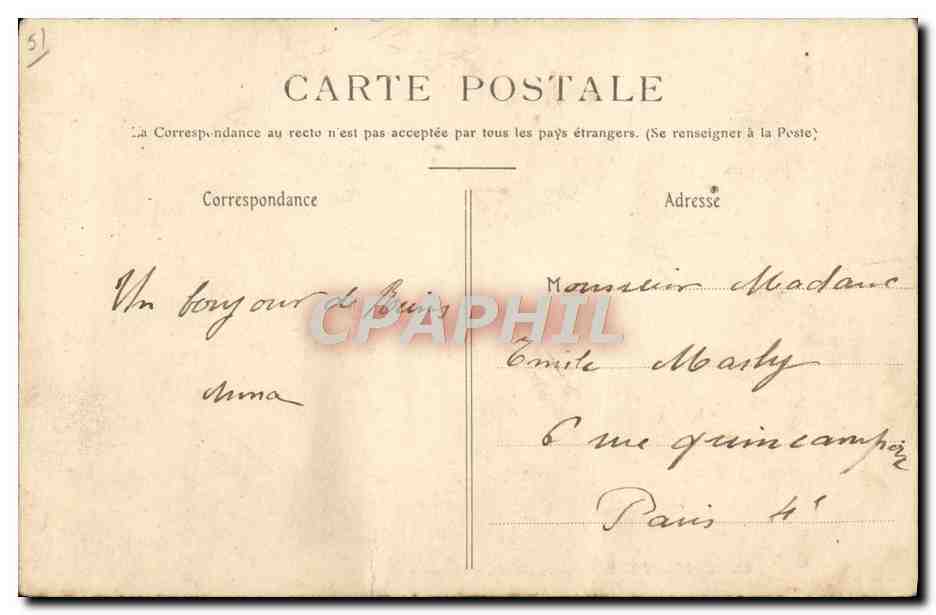 51
CARTE POSTALE
La Correspondance au recto n'est pas acceptée par tous les pays étrangers. (Se renseigner à la Poste)
Correspondance
Un bonjour de Reims
Anna
Adresse
Monsieur Madame
Emile Marly
6 rue quincampoix
Paris 4e
CPAPHIL